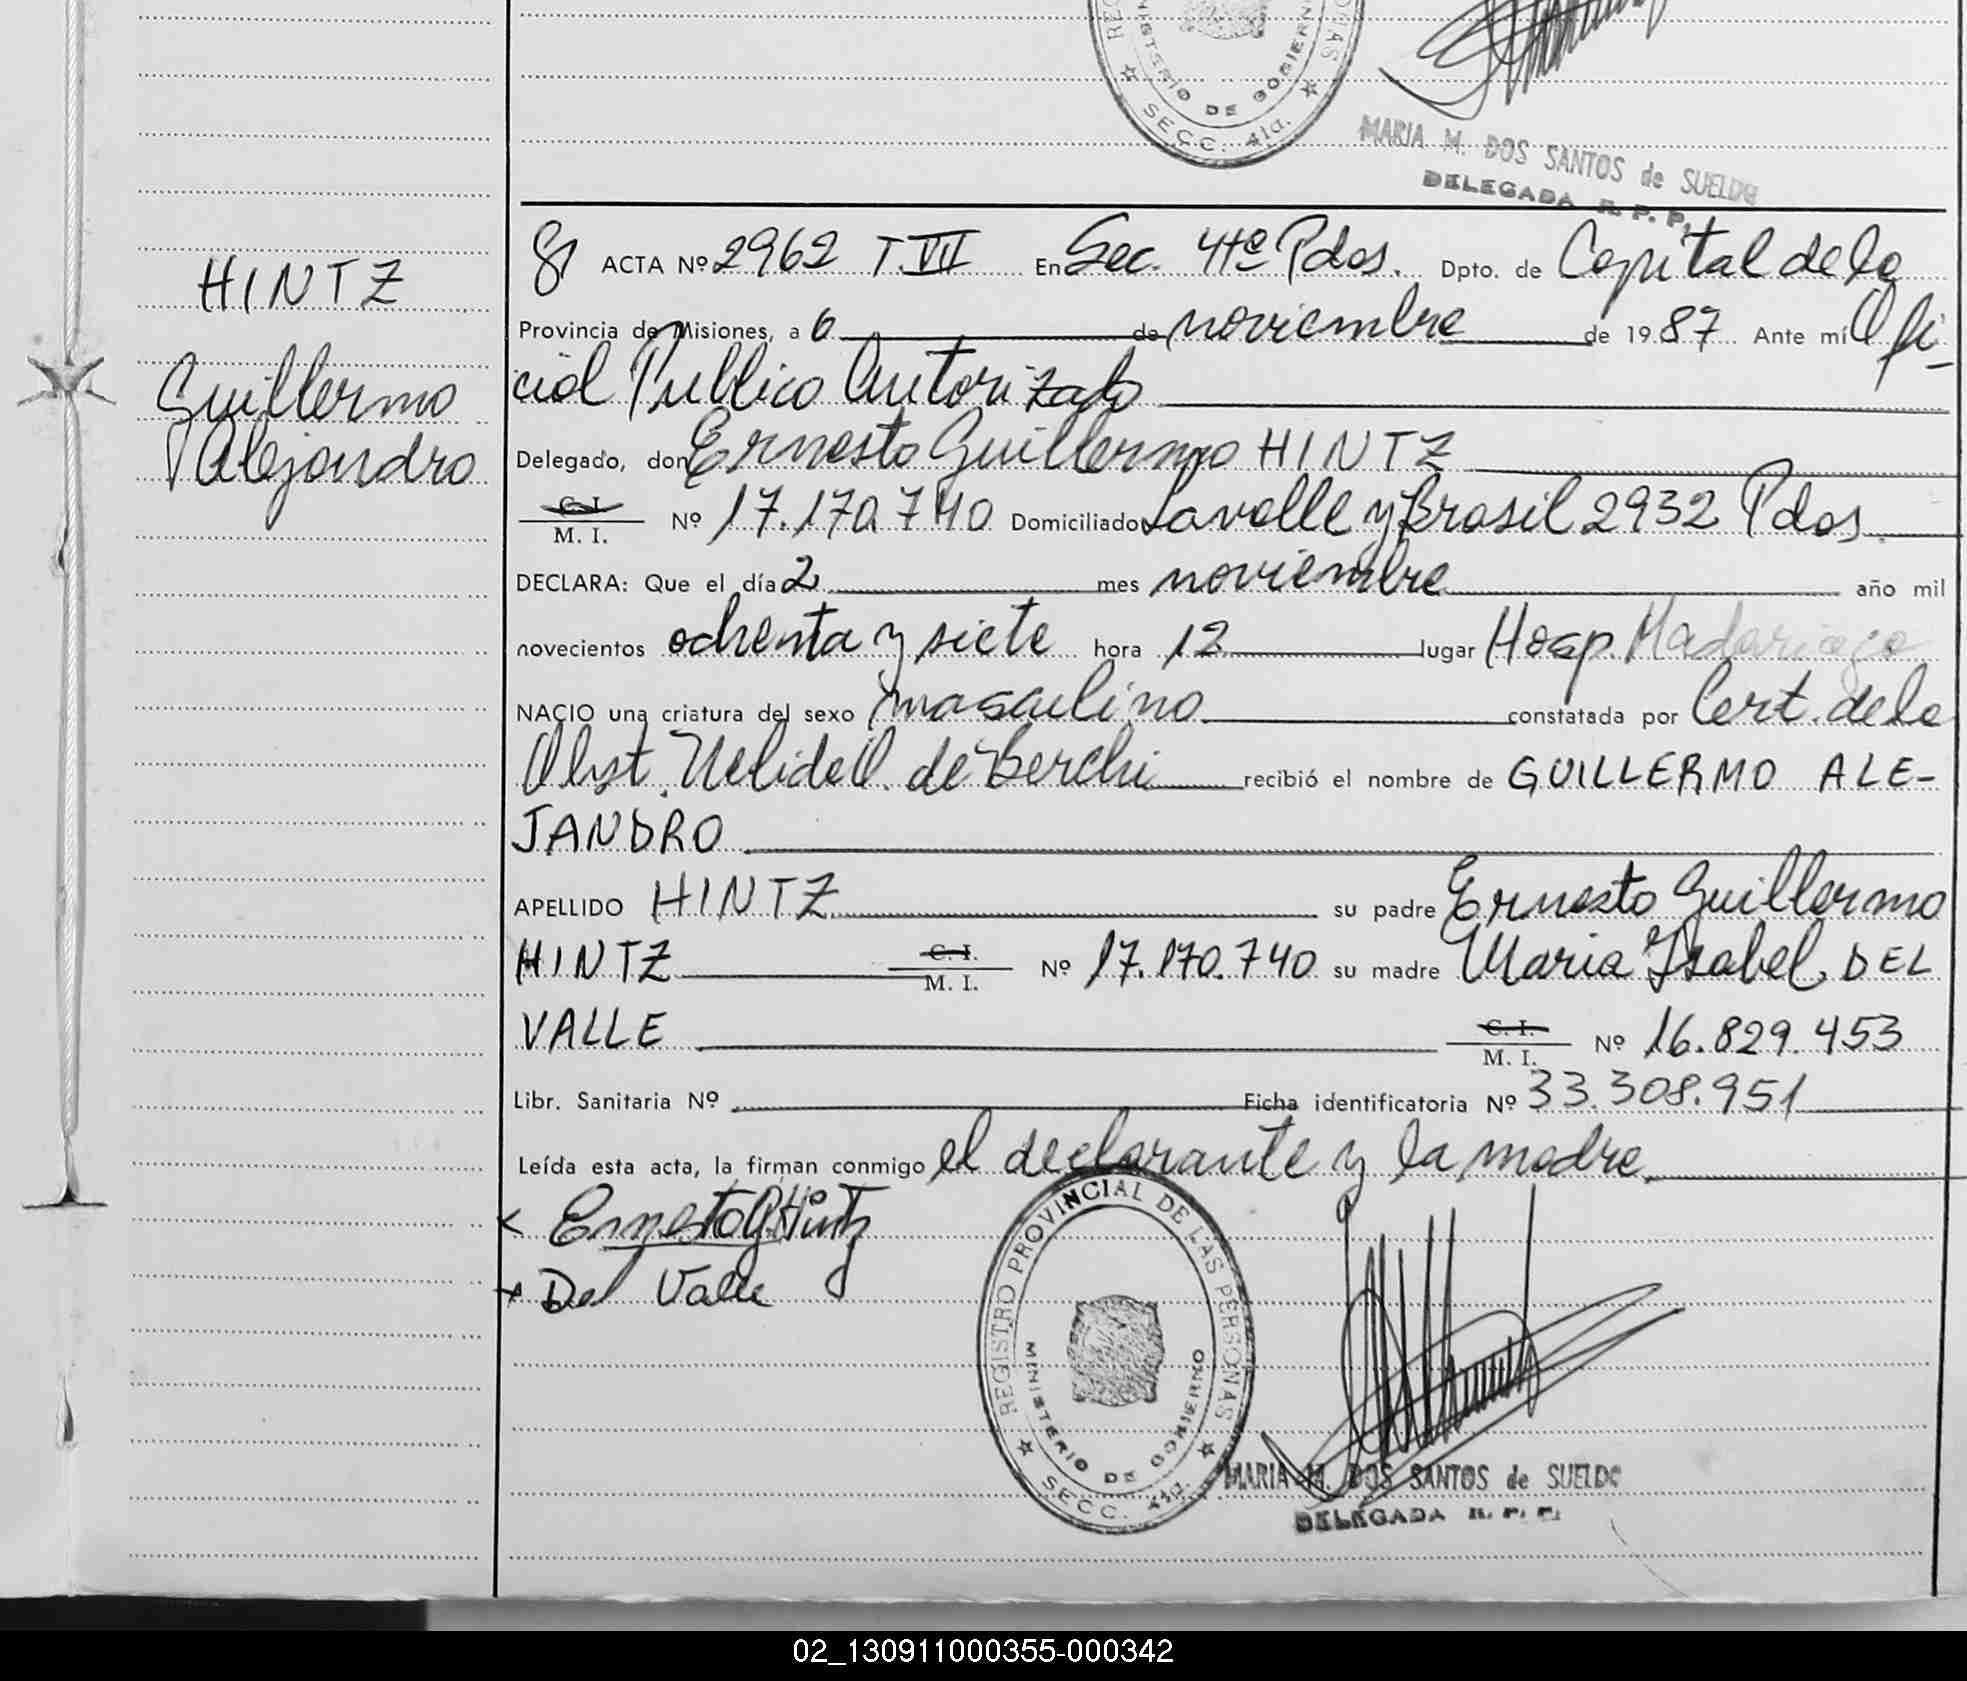 REG ONAS
MINISTERIO DE GOBIERN
SECC. 41a.
MARIA M. DOS SANTOS de SUELDO
DELEGADA R. P. P.
HINTZ
Guillermo
Alejandro
ACTA Nº 2962 T VII En Sec. 4ta Pdos. Dpto. de Capital de la
Provincia de Misiones, a 6 de noviembre de 1987 Ante mí Ofi-
cial Publico Autorizado
Delegado, don Ernesto Guillermo HINTZ
C. I.
M. I. Nº 17.170.740 Domiciliado Lavalle y Brasil 2932 Pdos.
DECLARA: Que el día 2 mes noviembre año mil
novecientos ochenta y siete hora 12 lugar Hosp. Madariaga
NACIO una criatura del sexo masculino constatada por Cert. de la
Obst. Nelida O. de Berchi recibió el nombre de GUILLERMO ALE-
JANDRO
APELLIDO HINTZ su padre Ernesto Guillermo
HINTZ C. I. M. I. Nº 17.170.740 su madre Maria Isabel DEL
VALLE C. I. M. I. Nº 16.829.453
Libr. Sanitaria Nº Ficha identificatoria Nº 33.308.951
Leída esta acta, la firman conmigo el declarante y la madre.
Ernesto G. Hintz
Del Valle
REGISTRO PROVINCIAL DE LAS PERSONAS
MINISTERIO DE GOBIERNO
SECC. 41a.
MARIA M. DOS SANTOS de SUELDO
DELEGADA R. P. P.
02_130911000355-000342